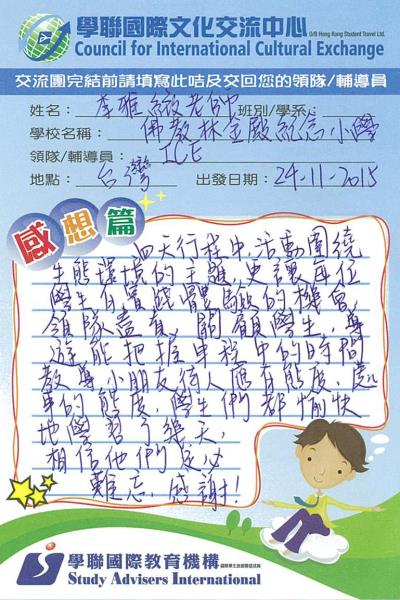 學聯國際文化交流中心
O/B Hong Kong Student Travel Ltd.
Council for International Cultural Exchange
交流團完結前請填寫此咭及交回您的領隊/輔導員
姓名：李雅緻老師 班別/學系：
學校名稱：佛教林金殿紀念小學
領隊/輔導員：ICE
地點：台灣 出發日期：24-11-2015
感想篇
四天行程中，活動圍繞
生態環境的主題，更讓每位
學生有實踐體驗的機會，
領隊盡責，關顧學生，導
遊能把握車程中的時間
教導小朋友待人應有態度，處
事的態度，學生們都愉快
地學習了幾天，
相信他們定必
難忘，感謝！
學聯國際教育機構
Study Advisers International